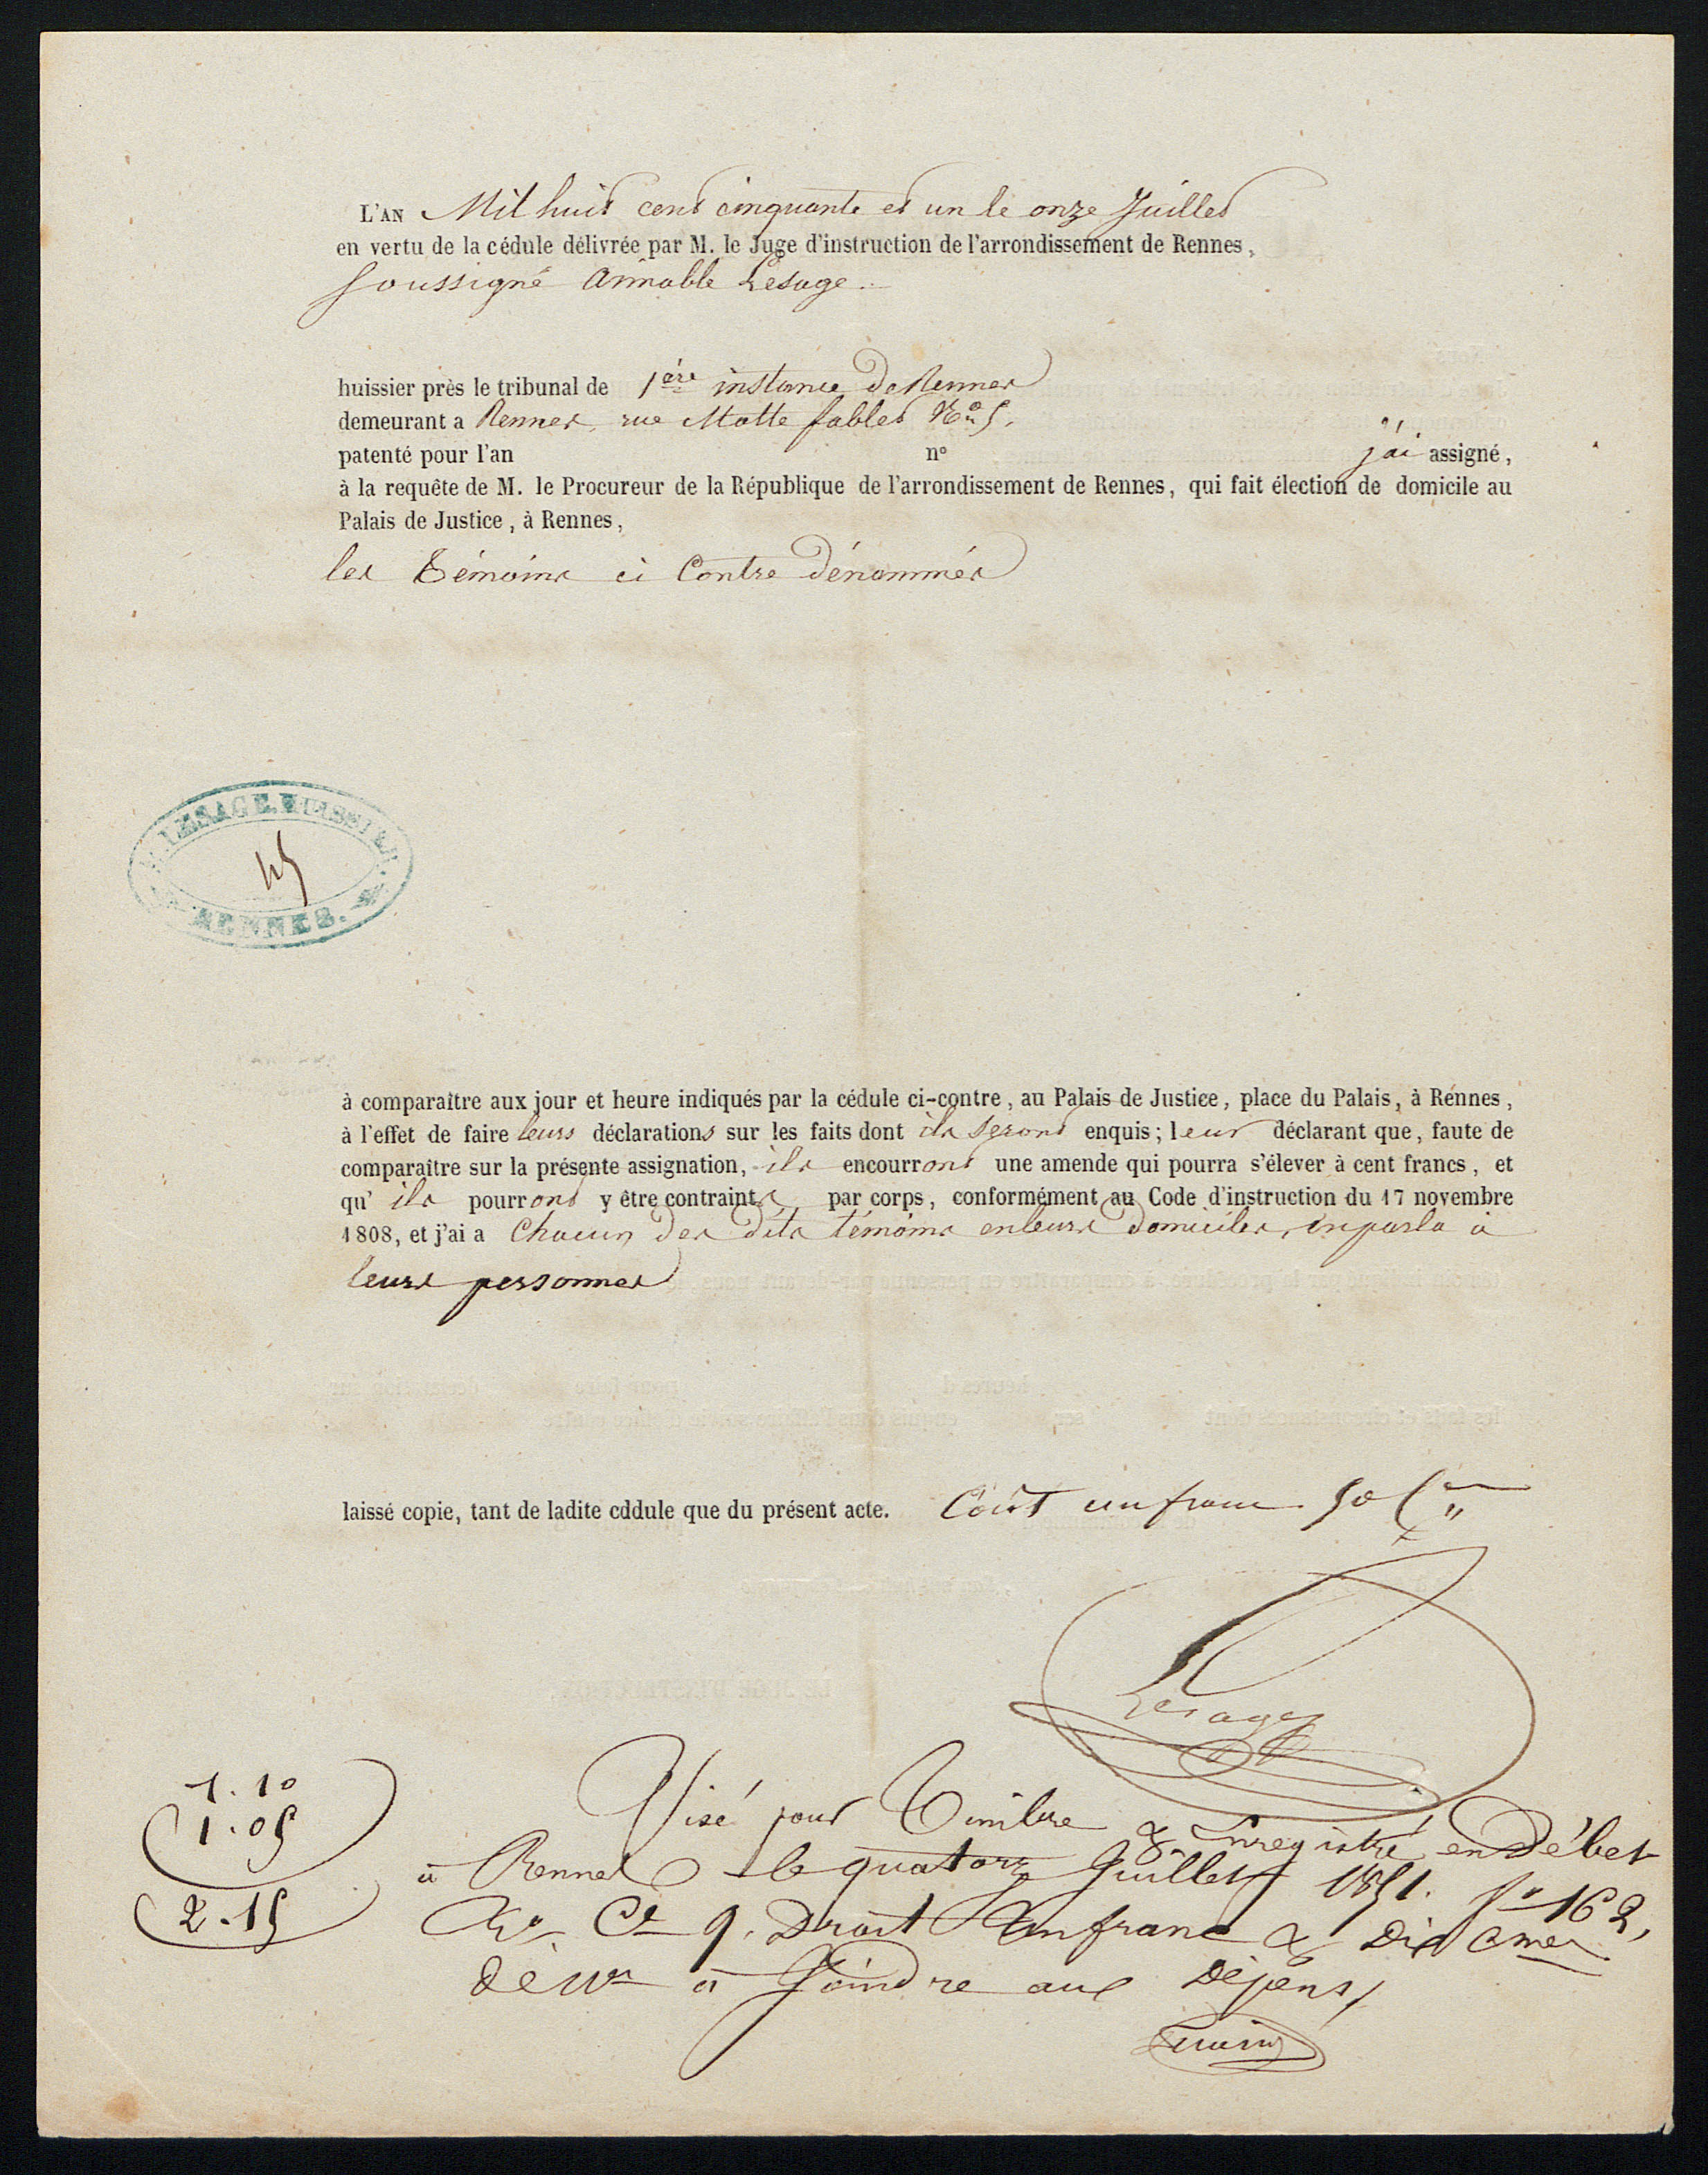 L'AN Mil huit cent cinquante et un le onze Juillet
en vertu de la cédule délivrée par M. le Juge d'instruction de l'arrondissement de Rennes,
soussigné Aimable Lesage
huissier près le tribunal de 1ère instance De Rennes
demeurant a Rennes, rue Motte fablet No 5.
patenté pour l'an n° j'ai assigné,
à la requête de M. le Procureur de la République de l'arrondissement de Rennes, qui fait élection de domicile au
Palais de Justice, à Rennes,
les Témoins ci Contre Dénommés
LESAGE, HUISSIER
45
RENNES.
à comparaître aux jour et heure indiqués par la cédule ci-contre, au Palais de Justice, place du Palais, à Rennes,
à l'effet de faire leurs déclarations sur les faits dont ils seront enquis; leur déclarant que, faute de
comparaître sur la présente assignation, ils encourront une amende qui pourra s'élever à cent francs, et
qu' ils pourront y être contraints par corps, conformément au Code d'instruction du 17 novembre
1808, et j'ai a Chacun des dits témoins en leurs domiciles, en parla à
leurs personnes
laissé copie, tant de ladite cddule que du présent acte. Coût un franc 50 C
Lesage
Visé pour Timbre & Enregistré en Débet
à Rennes le quatorze Juillet 1851. fo 162,
Vo Ce 9. Droit Un franc & Dix Cmes
à Joindre aux Dépens
1.10
1.05
2.15